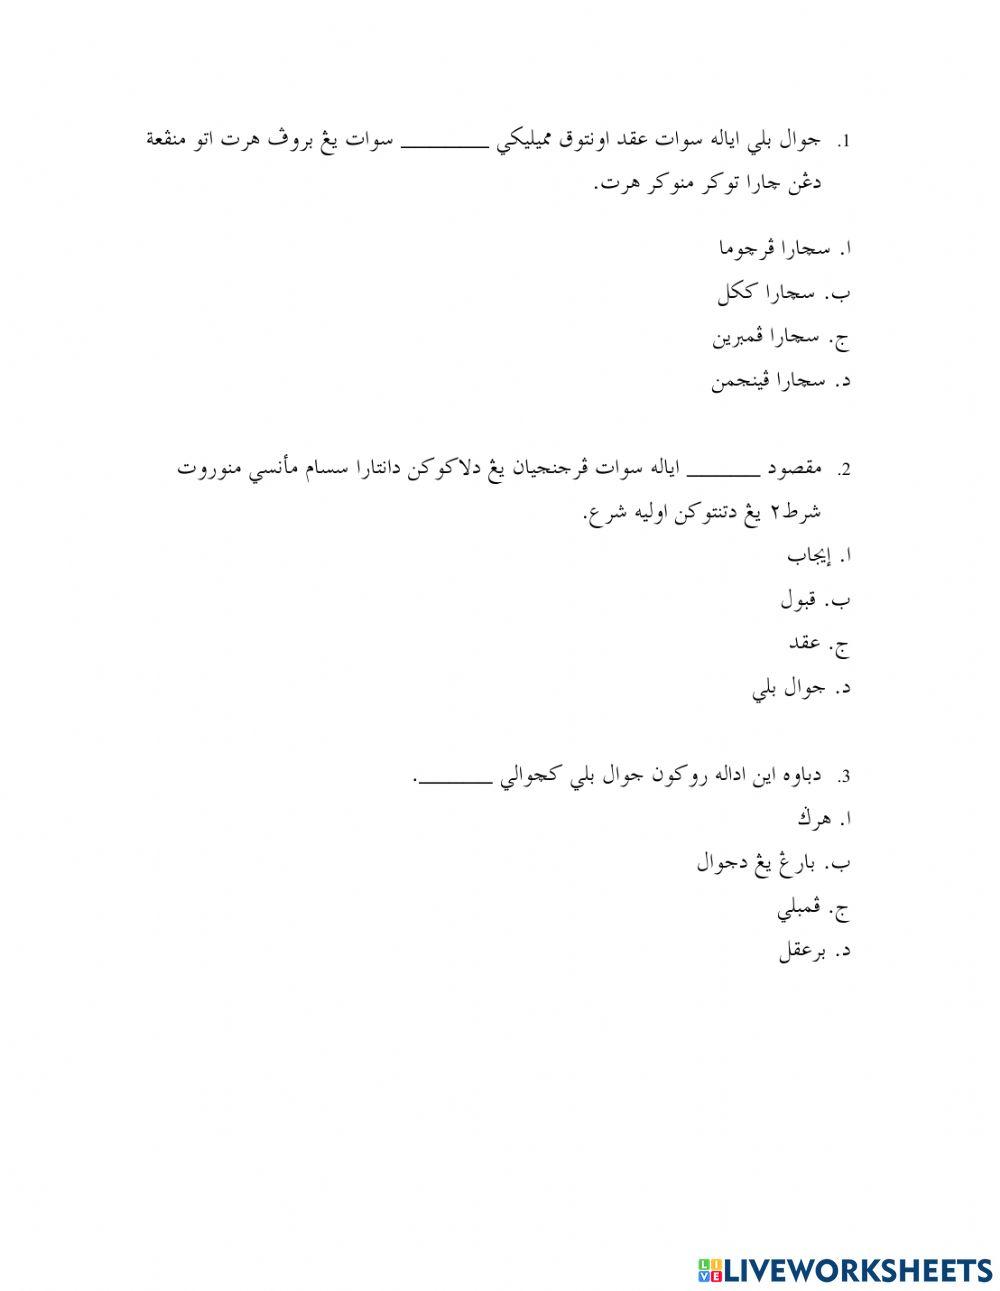 1. جوال بلي اياله سوات عقد اونتوق ممیلیکي ________ سوات يڠ بروڤ هرت اتو منفعة
دڠن چارا توکر منوکر هرت.
ا. سچارا ڤرچوما
ب. سچارا ککل
ج. سچارا ڤمبرين
د. سچارا ڤينجمن
2. مقصود _______ اياله سوات ڤرجنجيان يڠ دلاکوکن دانتارا سسام مأنسي منوروت
شرط٢ يڠ دتنتوکن اوليه شرع.
ا. إيجاب
ب. قبول
ج. عقد
د. جوال بلي
3. دباوه اين اداله روکون جوال بلي کچوالي _______.
ا. هرݢ
ب. بارڠ يڠ دجوال
ج. ڤمبلي
د. برعقل
LIVEWORKSHEETS